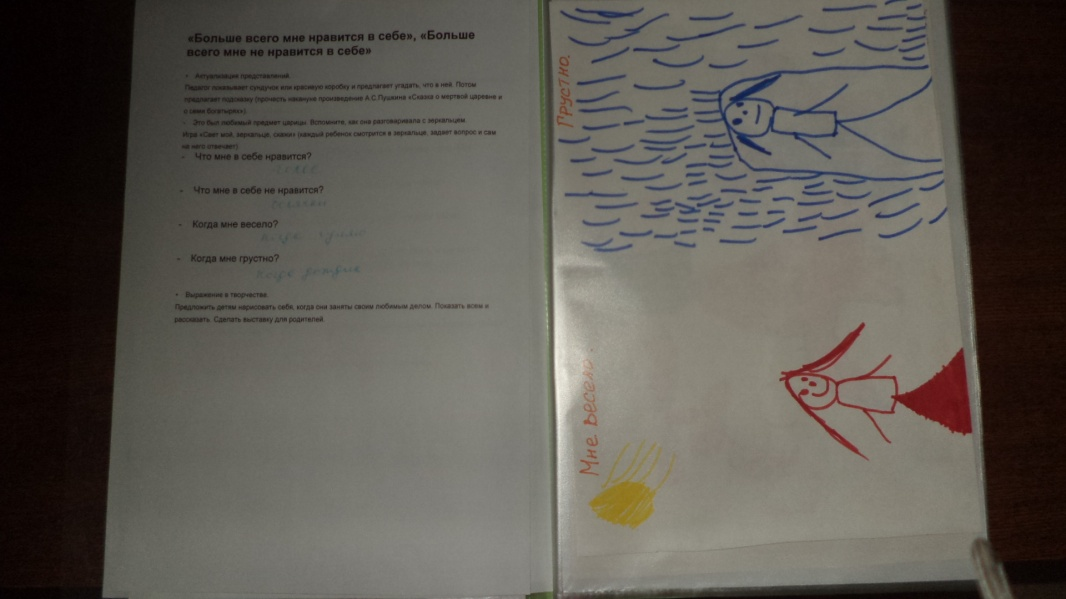 «Больше всего мне нравится в себе», «Больше
всего мне не нравится в себе»
• Актуализация представлений.
Педагог показывает сундучок или красивую коробку и предлагает угадать, что в ней. Потом
предлагает подсказку (прочесть накануне произведение А.С.Пушкина «Сказка о мертвой царевне и
о семи богатырях»)
- Это был любимый предмет царицы. Вспомните, как она разговаривала с зеркальцем.
Игра «Свет мой, зеркальце, скажи» (каждый ребенок смотрится в зеркальце, задает вопрос и сам
на него отвечает)
- Что мне в себе нравится?
- Что мне в себе не нравится?
- Когда мне весело?
когда гуляю
- Когда мне грустно?
когда дождик
• Выражение в творчестве.
Предложить детям нарисовать себя, когда они заняты своим любимым делом. Показать всем и
рассказать. Сделать выставку для родителей.
Грустно.
Мне весело.